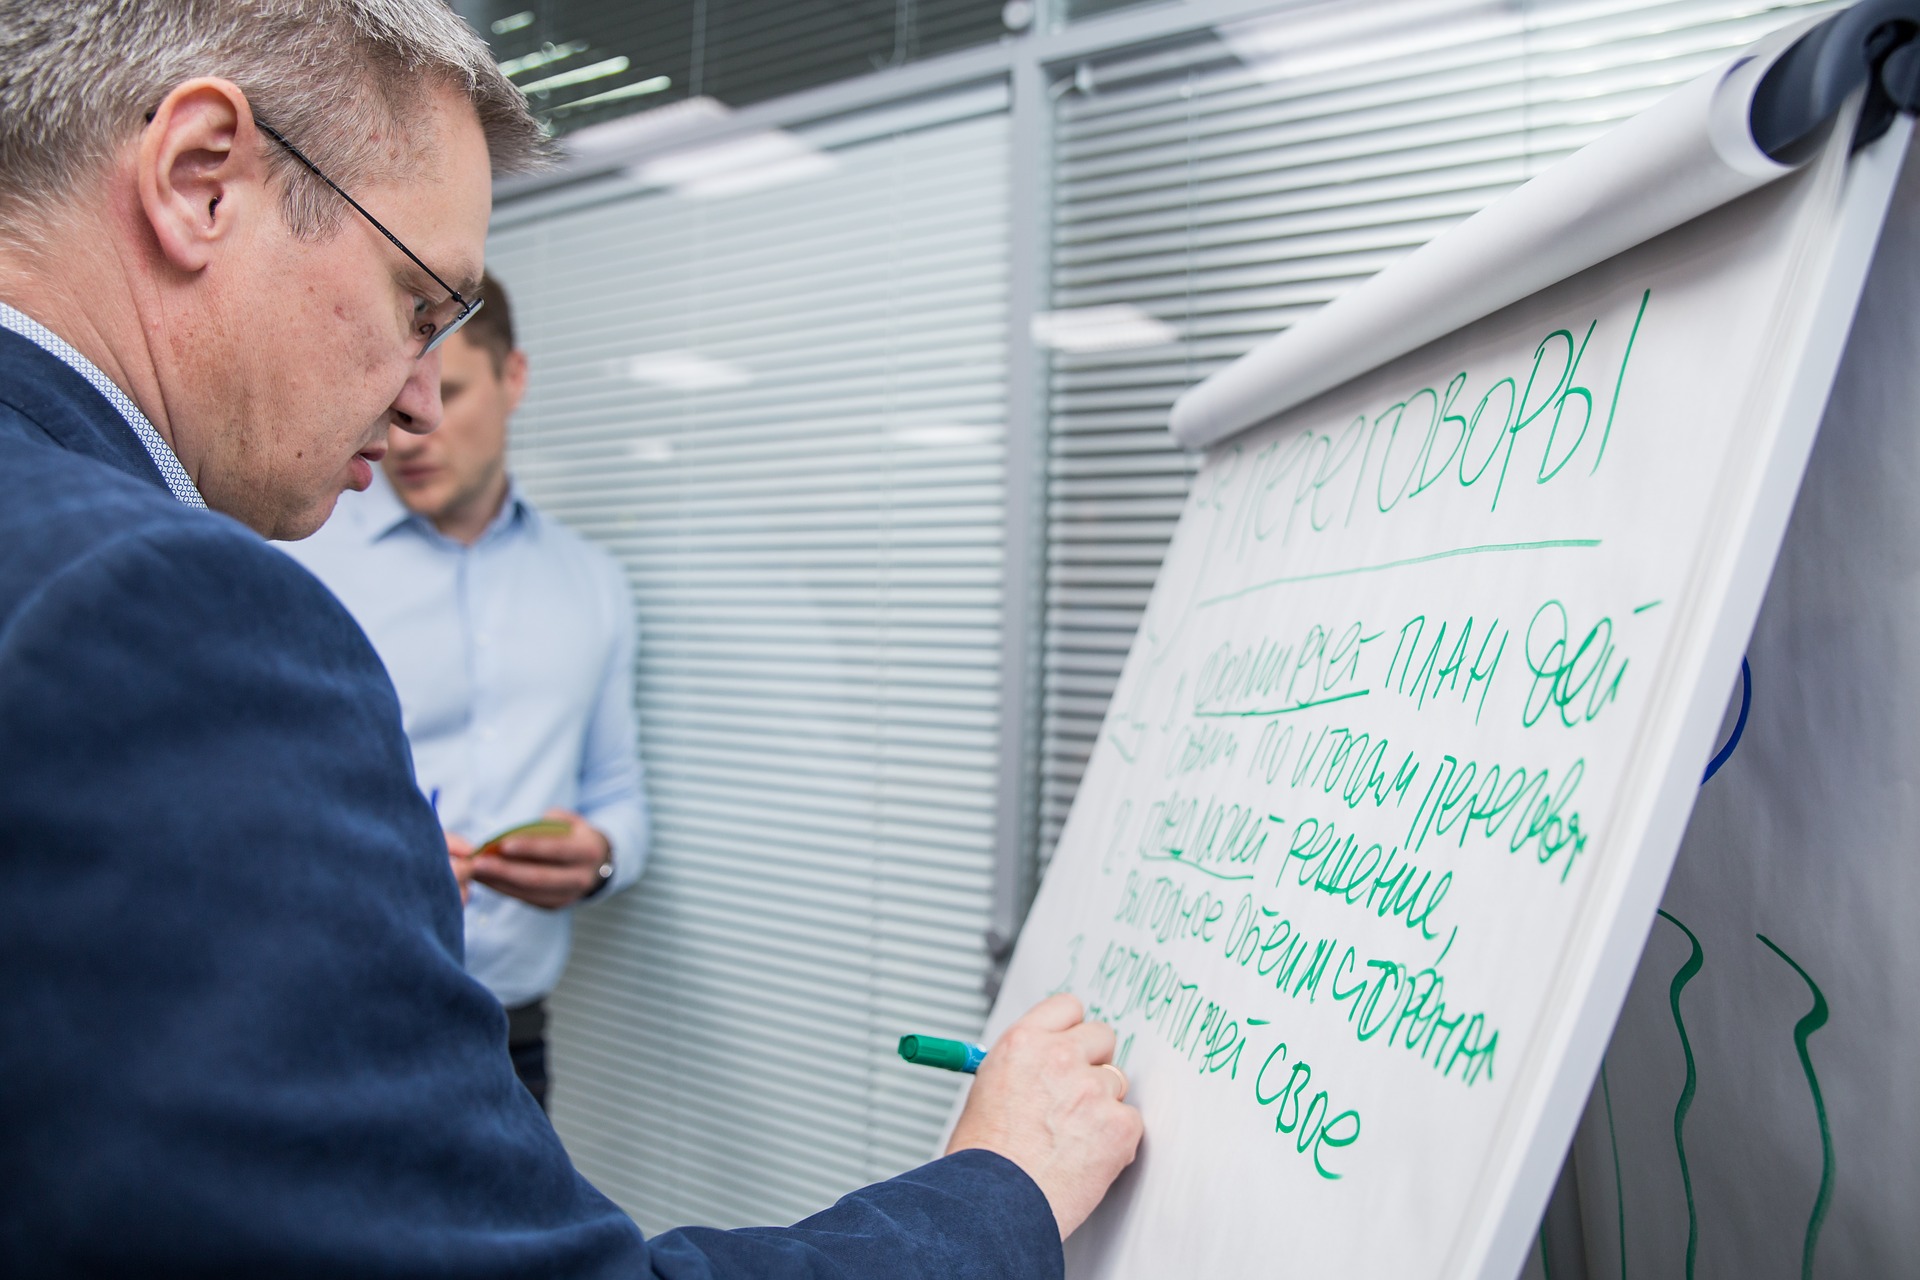 ПЕРЕГОВОРЫ
1. Формирует ПЛАН дей
ствий по итогам перегов
2. Предлагает Решение,
выгодное обеим сторонам
3. Аргументирует свое